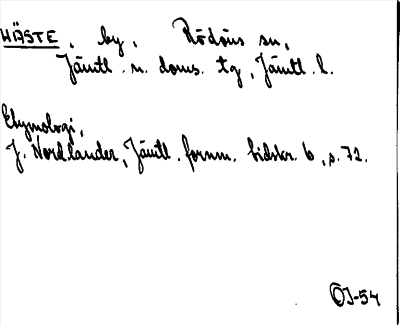 HÄSTE, by, Rödöns sn,
Jämtl. n. doms. tg, Jämtl. l.
Etymologi,
J. Nordlander, Jämtl. fornm. tidskr. 6, s. 72.
OJ-54